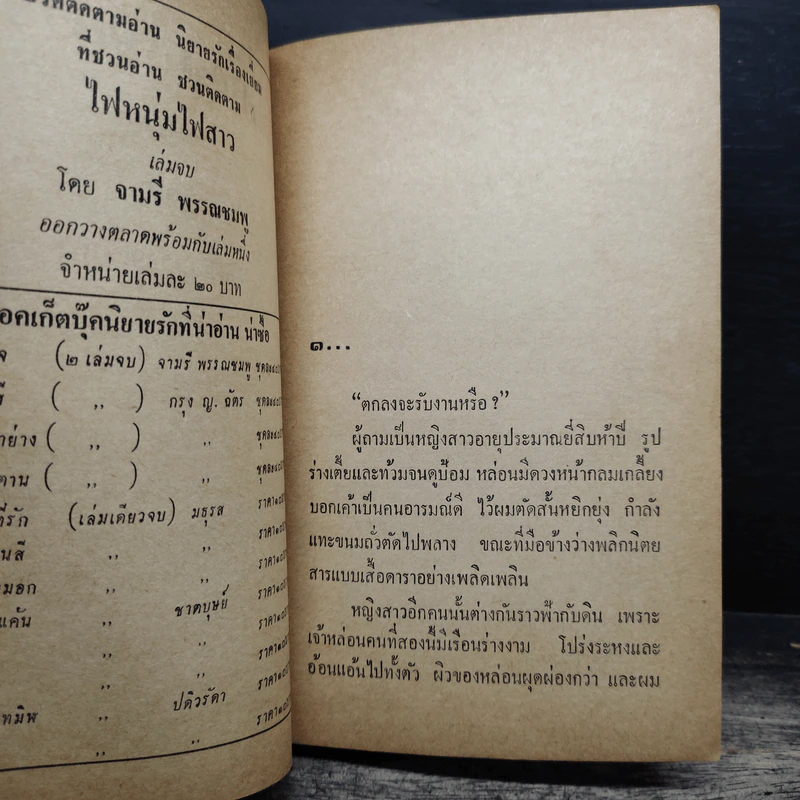 ติดตามอ่าน นิยายรักเรื่องเยี่ยม
ที่ชวนอ่าน ชวนติดตาม
ไฟหนุ่มไฟสาว
เล่มจบ
โดย จามรี พรรณชมพู
ออกวางตลาดพร้อมกับเล่มหนึ่ง
จำหน่ายเล่มละ ๒๐ บาท
อคเก็ตบุ๊คนิยายรักที่น่าอ่าน น่าซื้อ
(๒ เล่มจบ) จามรี พรรณชมพู
( ,, ) กรุง ญ. ฉัตร
ย่าง ( ,, ) ,,
ตาน ( ,, ) ,,
ที่รัก (เล่มเดียวจบ) มธุรส
นสี ,, ,,
มอก ,, ชาตบุษย์
แค้น ,, ,,
,, ,,
ทมิพ ,, ปดิวรัดา
,, ,,
๑...
“ตกลงจะรับงานหรือ ?”
ผู้ถามเป็นหญิงสาวอายุประมาณยี่สิบห้าปี รูป
ร่างเตี้ยและท้วมจนดูป้อม หล่อนมีดวงหน้ากลมเกลี้ยง
บอกเค้าเป็นคนอารมณ์ดี ไว้ผมตัดสั้นหยิกยุ่ง กำลัง
แทะขนมถั่วตัดไปพลาง ขณะที่มือข้างว่างพลิกนิตย
สารแบบเสื้อดาราอย่างเพลิดเพลิน
หญิงสาวอีกคนนั้นต่างกันราวฟ้ากับดิน เพราะ
เจ้าหล่อนคนที่สองนี้มีเรือนร่างงาม โปร่งระหงและ
อ้อนแอ้นไปทั้งตัว ผิวของหล่อนผุดผ่องกว่า และผม